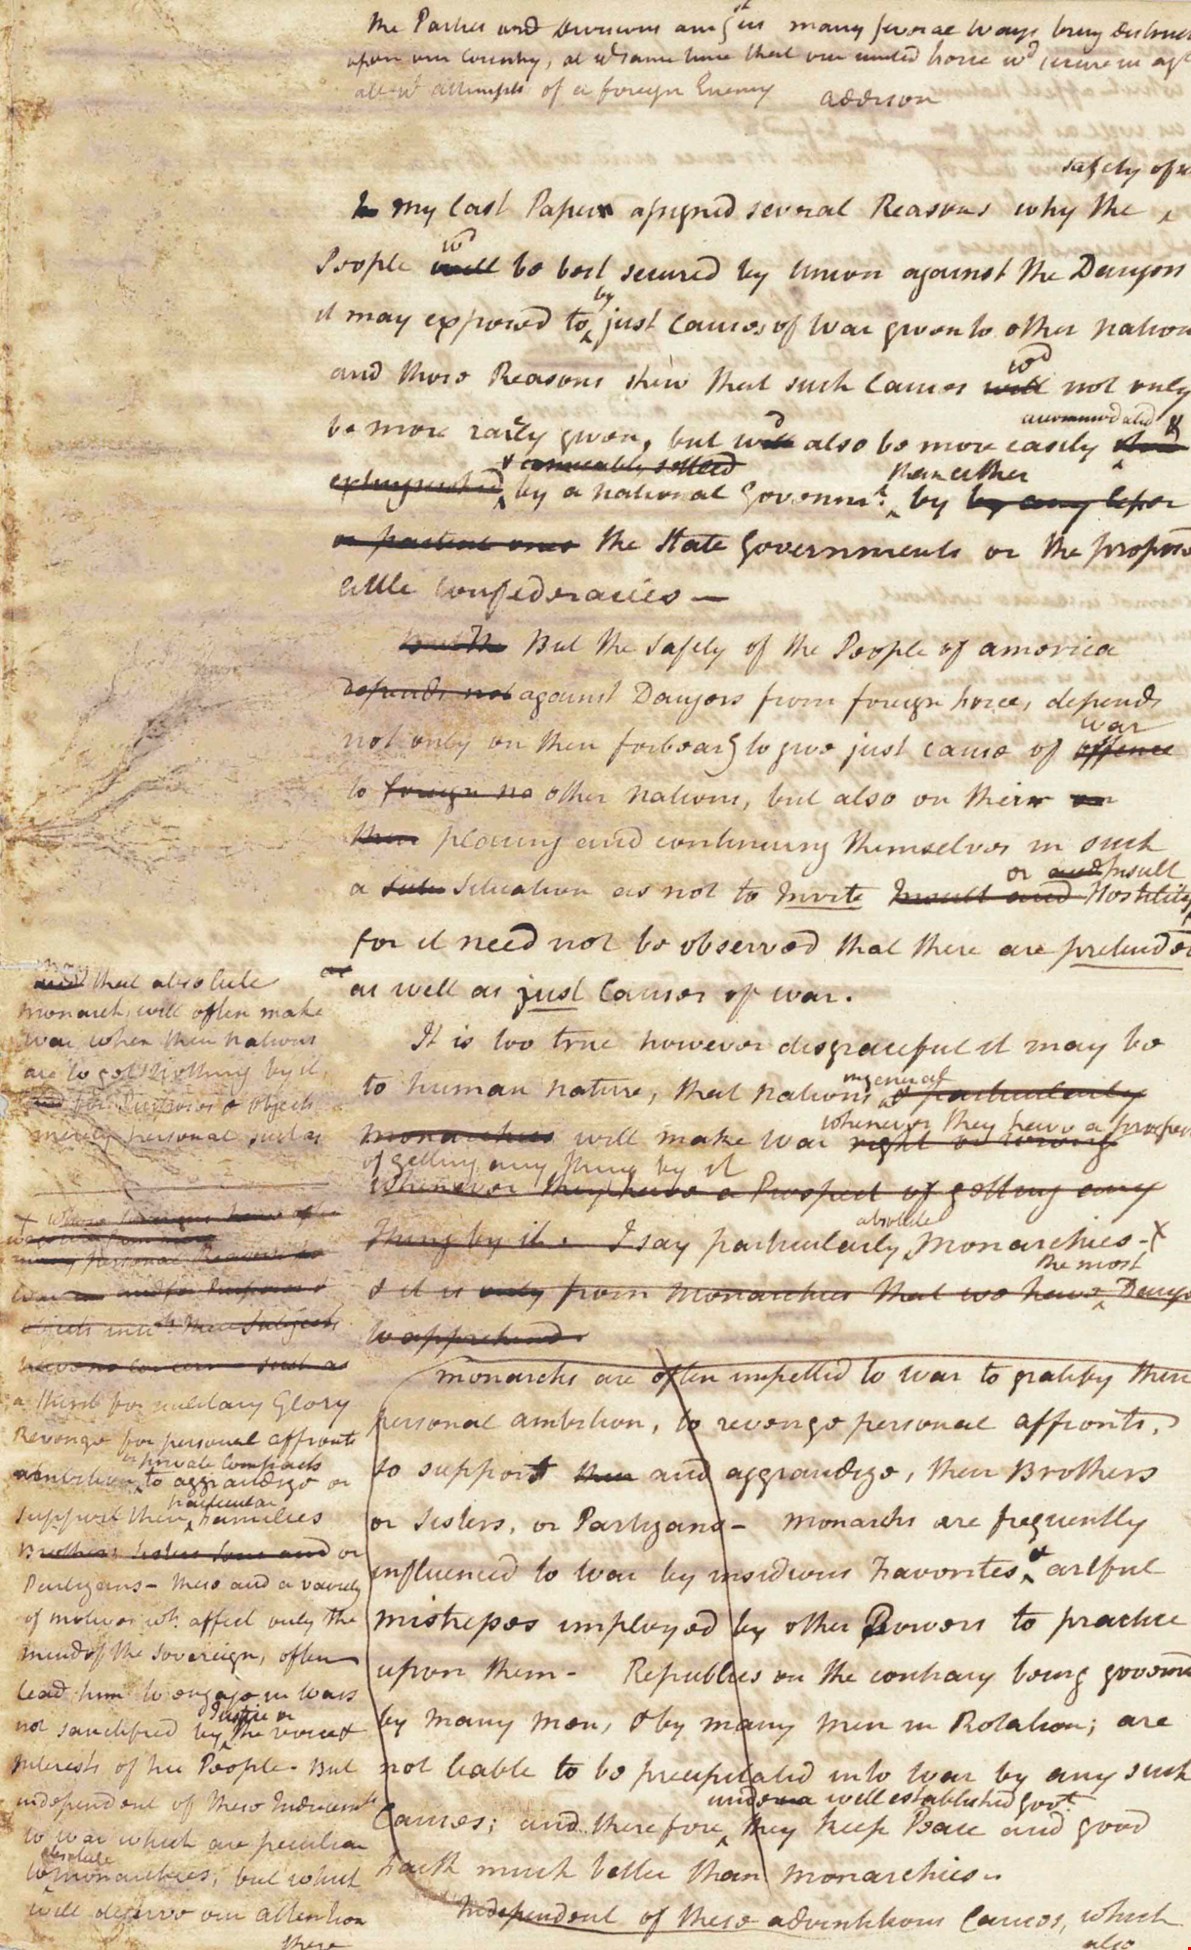 the Parties and Divisions amgst us many several ways bring destruct
upon our Country, at ye same time that our united force wd secure us agt
all ye attempts of a foreign Enemy addison
safety of
In my last Paper assigned several Reasons why the
wd
People will be best secured by Union against the Dangers
by
it may exposed to just Causes of War given to other nation
and those Reasons shew that such Causes will not only
wd
be more rarely given, but will also be more easily
accommodated
& amicably settled
than either
extinguished, by a national Governmt. by by any lesser
or partial ones the State Governments or the propose
little Confederacies —
But the But the Safety of the People of america
depends not against Dangers from foreign force, depends
war
not only on their forbearg to give just cause of offence
to foreign na other nations, but also on their on
their placing and continuing themselves in such
or and Insult
a situation as not to Invite Insult and Hostility
for it need not be observed that there are pretended
as well as just Causes of war.
It is too true however disgraceful it may be
in general
to human nature, that nations & particularly
whenever they have a prospect
monarchies will make war right or wrong
of getting any thing by it
whenever they have a Prospect of getting any
absolute
Thing by it. I say particularly Monarchies — x
the most
& it is only from Monarchies that we have Dange
to apprehend.
monarchs are often impelled to war to gratify their
personal ambition, to revenge personal affronts,
to support their and aggrandize, their Brothers
or Sisters, or Partizans — monarchs are frequently
influenced to war by insidious Favorites, & artful
mistresses employed by other Powers to practice
upon them — Republics on the contrary being governed
by many men, & by many men in Rotation; are
not liable to be precipitated into war by any such
under a well established govt.
Causes; and therefore they keep Peace and good
Faith much better than monarchies.
Independent of these adventitious Causes, which
also
that absolute
monarchs will often make
war when their nations
are to get Nothing by it,
for Purposes & objects
merely personal such as
many personal Reasons to
war and for Purposes &
objects in wh. their Subjects
have no concern such as
a thirst for military Glory
Revenge for personal affronts
or private Compacts
ambition to aggrandize or
particular
support their Families
Brothers Sisters Sons and or
Partizans — these and a variety
of motives wh. affect only the
mind of the Sovereign, often
lead him to engage in wars
Justice or
not sanctified by the voice &
Interests of his People. But
independent of these Inducemts
to war which are peculiar
absolute
to monarchies, but which
will deserve our attention
there